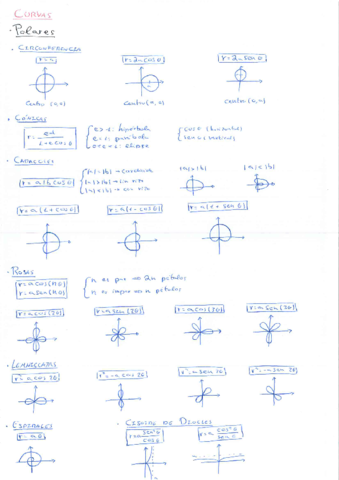 CURVAS
• Polares
• CIRCUNFERENCIA
r=a r=2a cos θ r=2a sen θ
centro (0,0) centro (a,0) centro (0,a)
• CÓNICAS
e>1: hipérbola
e=1: parábola
0<e<1: elipse
cos θ (horizontal)
sen θ (vertical)
• CARDIOIDES
r=a±b cos θ
|a|>|b| |a|<|b|
r=a(1+cos θ) r=a(1-cos θ) r=a(1+sen θ)
• ROSAS
r=a cos(nθ)
r=a sen(nθ)
n es par ⇒ 2n pétalos
n es impar ⇒ n pétalos
r=a cos(2θ) r=a sen(2θ) r=a cos(3θ) r=a sen(3θ)
• LEMNISCATAS
r²=a cos 2θ r²=-a cos 2θ r²=a sen 2θ r²=-a sen 2θ
• ESPIRALES
r=aθ
• CISOIDE DE DIOCLES